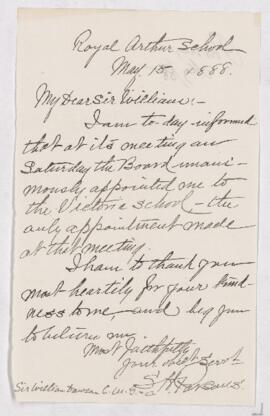 Royal Arthur School
May 15 1888.
My Dear Sir William:-
I am to-day informed
that at its meeting on
Saturday the Board unani-
mously appointed me to
the Victoria School - the
only appointment made
at that meeting.
I have to thank you
most heartily for your kind-
ness to me, and beg you
to believe me
Most faithfully
your obed't Serv't
Parsons
Sir William Dawson C.M.G.